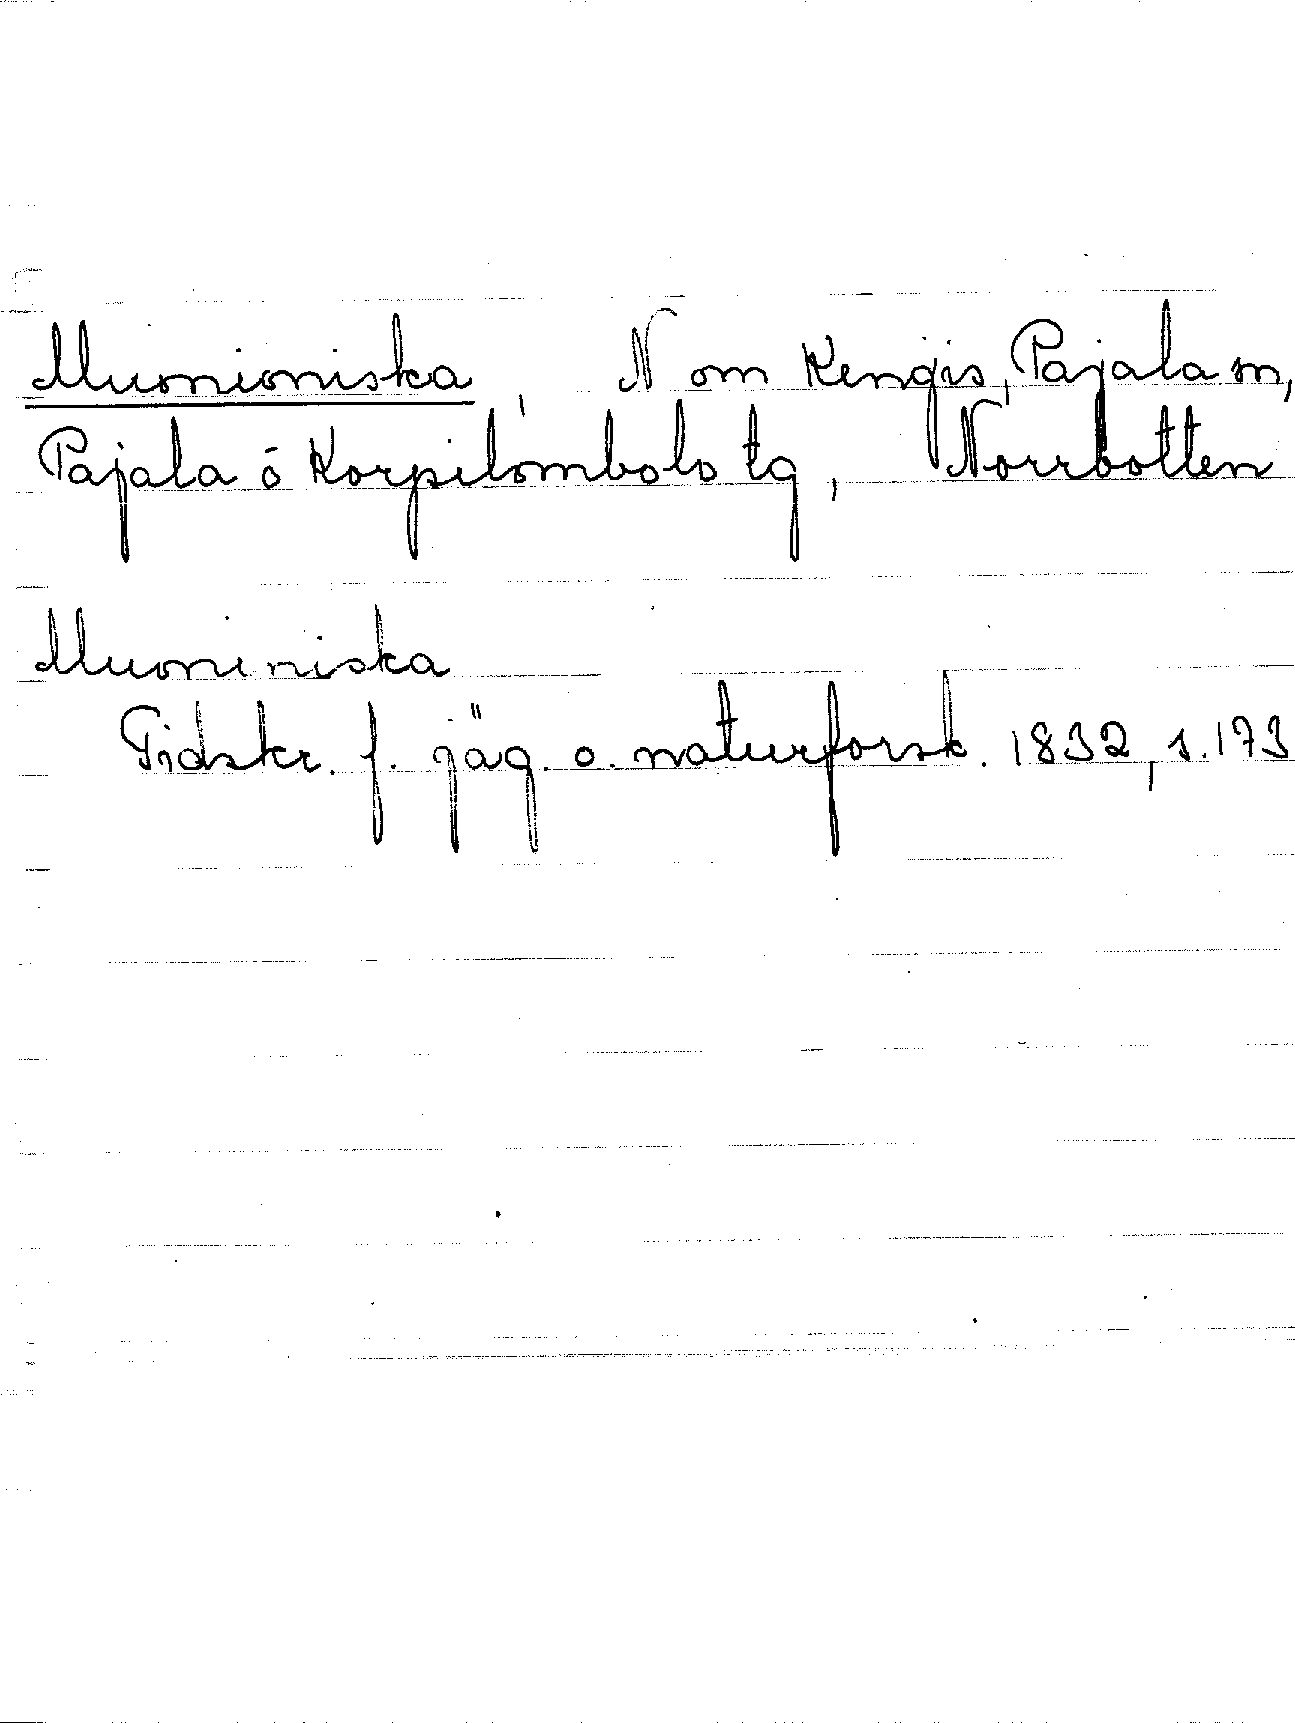 Muonioniska, N om Kengis, Pajala sn,
Pajala o Korpilombolo tg, Norrbotten
Muoniniska
Tidskr. f. jäg. o. naturforsk. 1832, s. 173